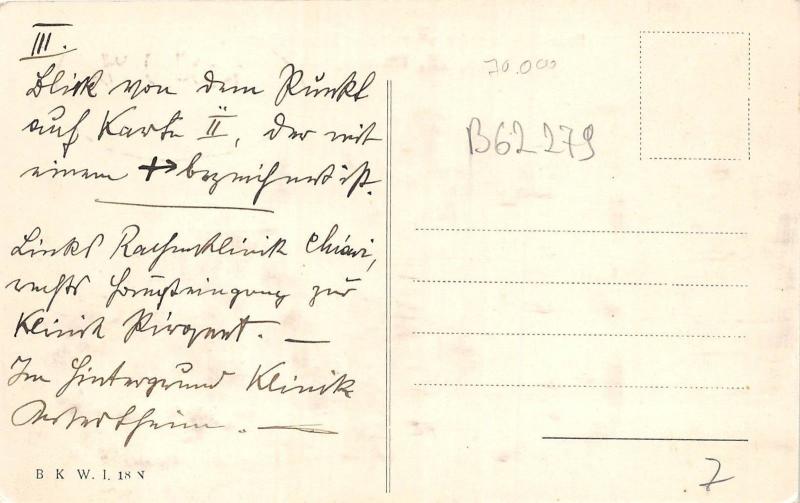 III.
Blick von dem Punkt
auf Karte II, der mit
einem +→ bezeichnet ist.
Links Rachenklinik Chiari,
rechts Haupteingang zur
Klinik Pirquet. —
Im Hintergrund Klinik
Wertheim. —
B K W. I. 18 N
70.000
B62279
7